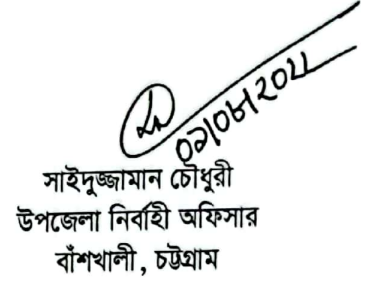 সাইদুজ্জামান চৌধুরী
উপজেলা নির্বাহী অফিসার
বাঁশখালী, চট্টগ্রাম